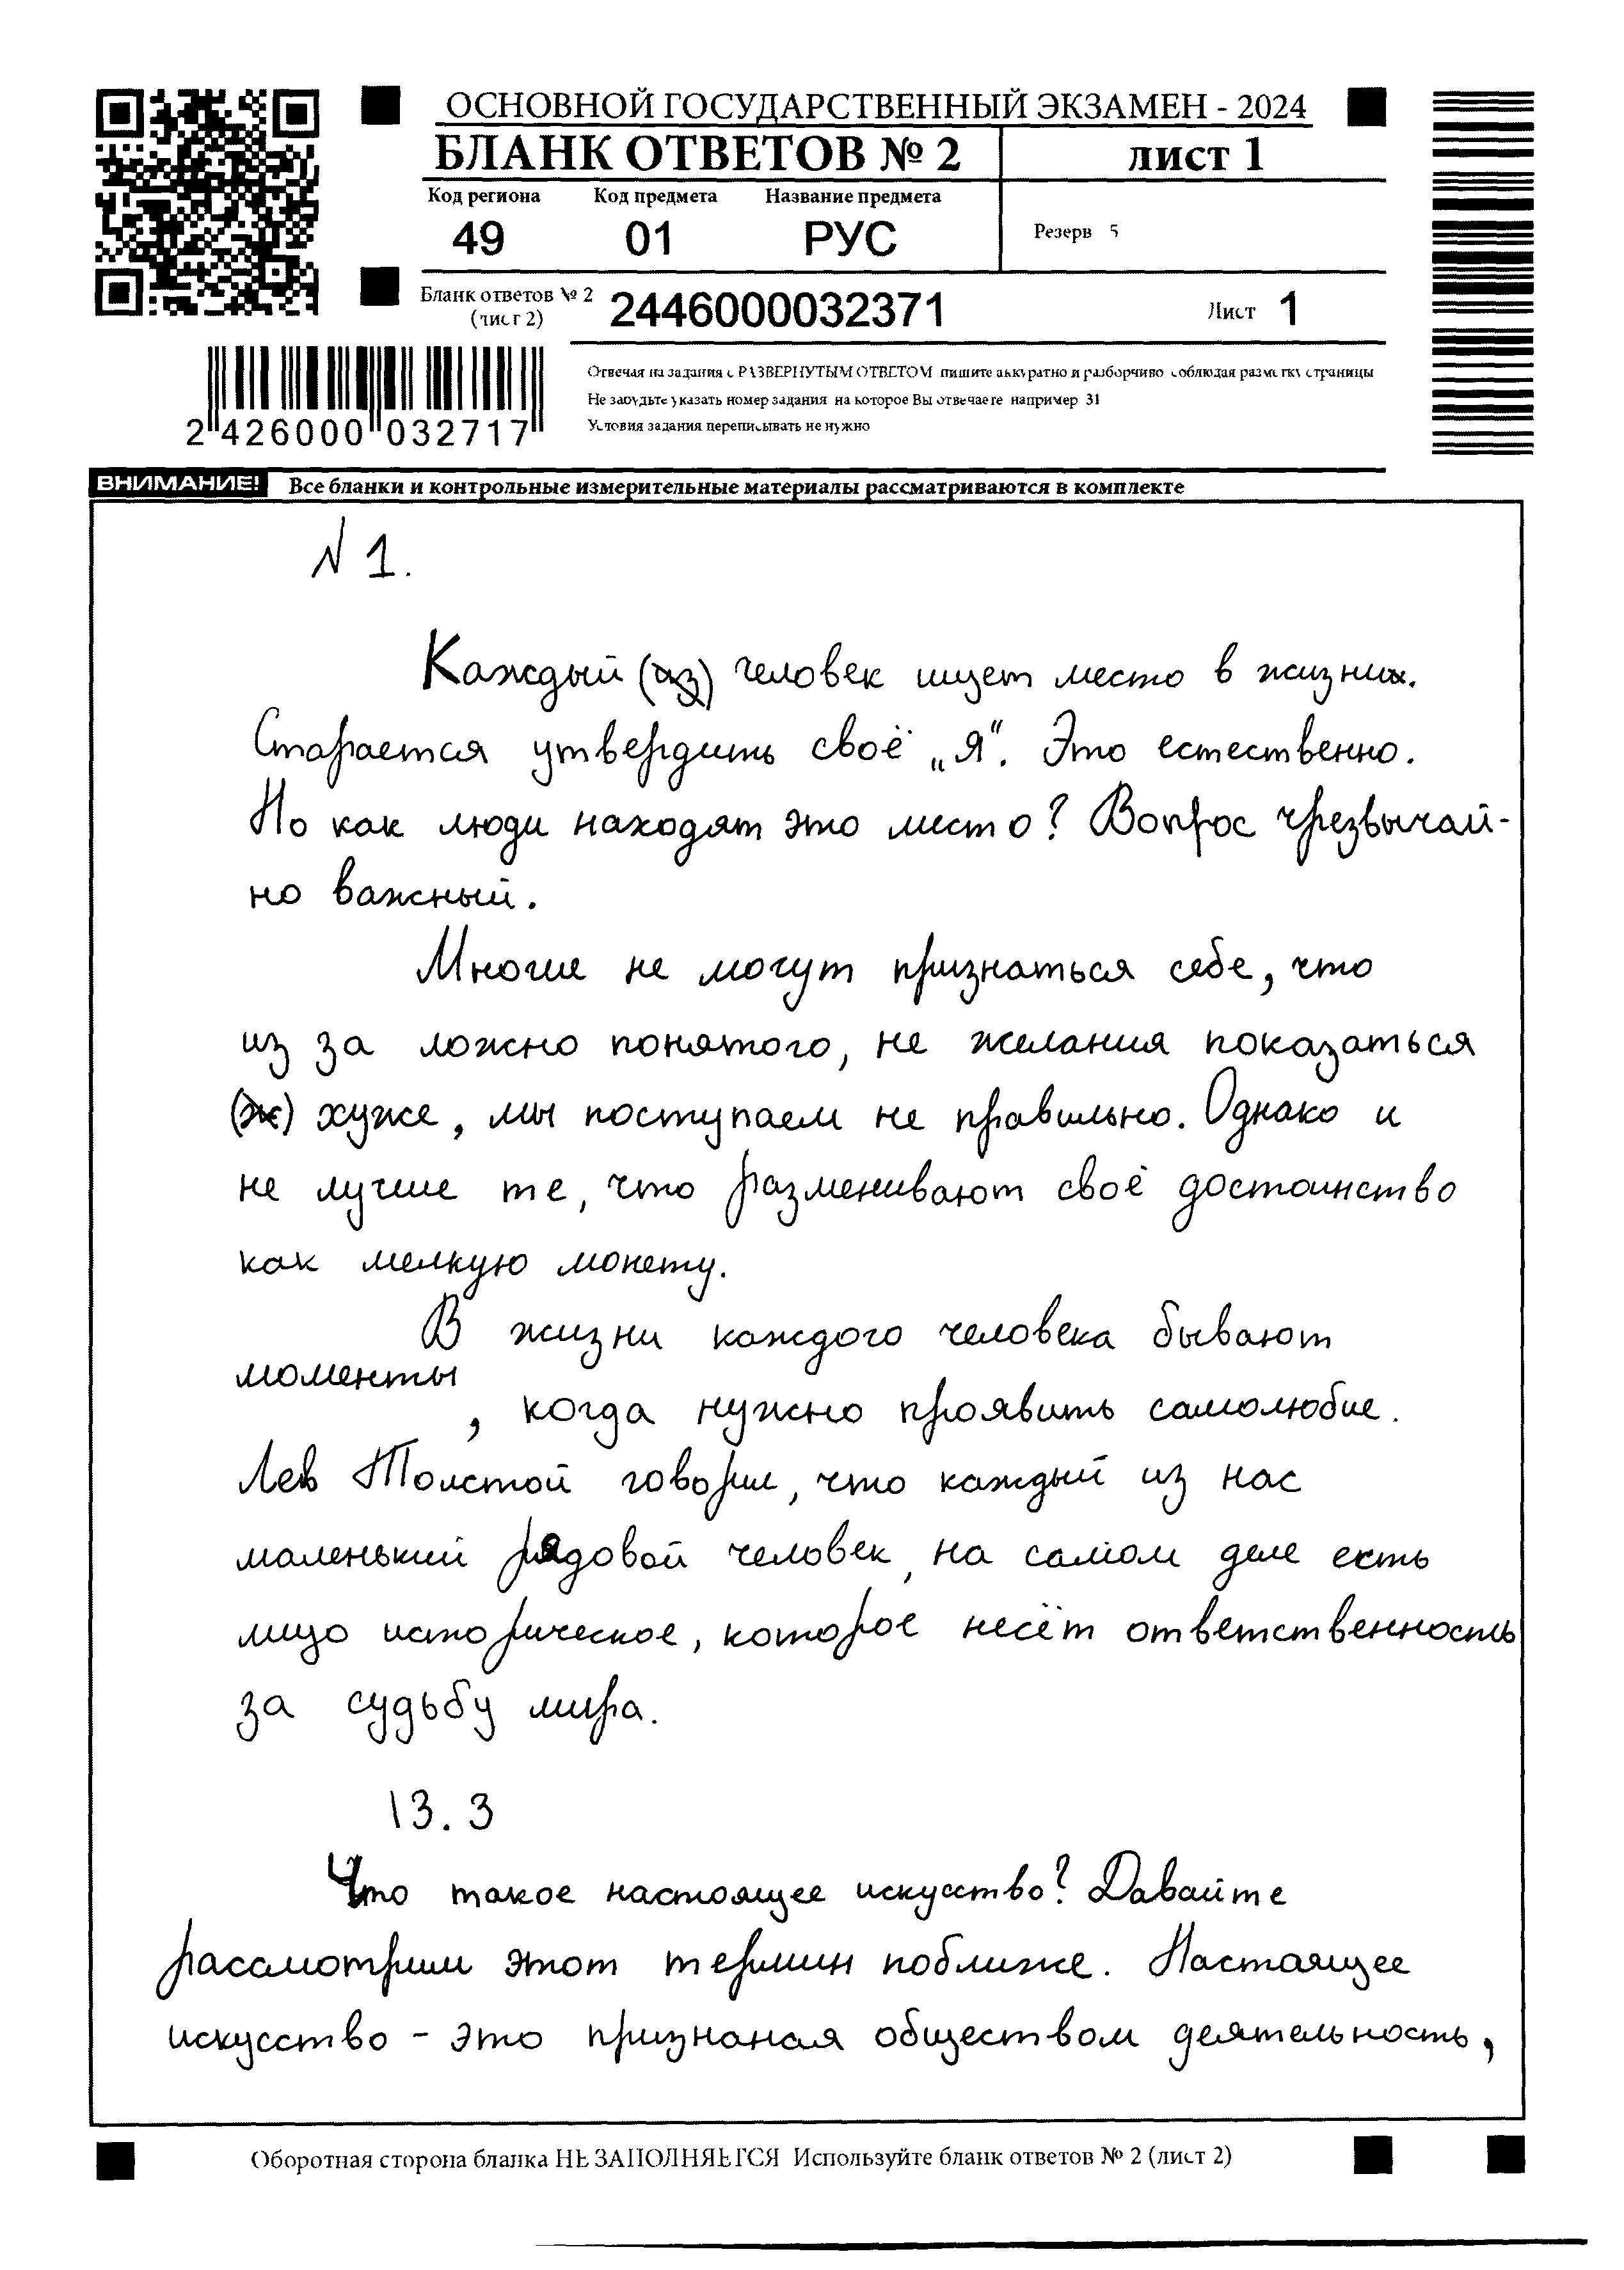 ОСНОВНОЙ ГОСУДАРСТВЕННЫЙ ЭКЗАМЕН - 2024
БЛАНК ОТВЕТОВ № 2
лист 1
Код региона
Код предмета
Название предмета
49
01
РУС
Резерв 5
Бланк ответов № 2
(лист 2)
2446000032371
Лист 1
2 426000 032717
Отвечая на задания с РАЗВЕРНУТЫМ ОТВЕТОМ пишите аккуратно и разборчиво соблюдая разметку страницы
Не забудьте указать номер задания на которое Вы отвечаете например 31
Условия задания переписывать не нужно
ВНИМАНИЕ! Все бланки и контрольные измерительные материалы рассматриваются в комплекте
N 1.
Каждый (из) человек ищет место в жизни.
Старается утвердить своё „Я“. Это естественно.
Но как люди находят это место? Вопрос чрезвычай-
но важный.
Многие не могут признаться себе, что
из за ложно понятого, не желания показаться
(же) хуже, мы поступаем не правильно. Однако и
не лучше те, что разменивают своё достоинство
как мелкую монету.
В жизни каждого человека бывают
моменты, когда нужно проявить самолюбие.
Лев Толстой говорил, что каждый из нас
маленький рядовой человек, на самом деле есть
лицо историческое, которое несёт ответственность
за судьбу мира.
13.3
Что такое настоящее искусство? Давайте
рассмотрим этот термин поближе. Настоящее
искусство - это признаная обществом деятельность,
Оборотная сторона бланка НЕ ЗАПОЛНЯЕТСЯ Используйте бланк ответов № 2 (лист 2)